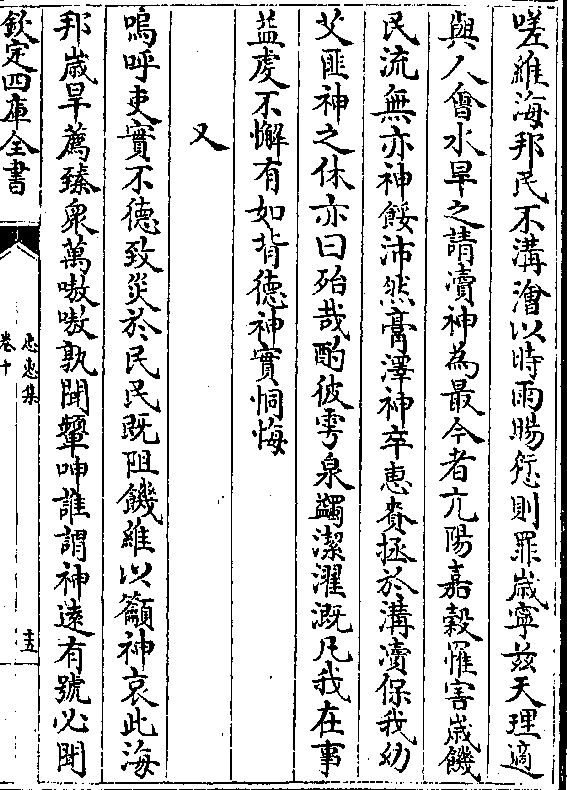 嗟維海邦民不溝澮以時雨暘愆則罪歲寧兹天理適
與人會水旱之請瀆神為最今者亢陽嘉穀罹害歲饑
民流無亦神餒沛然膏澤神卒惠賚拯於溝瀆保我幼
艾匪神之休亦曰殆哉酌彼雩泉蠲潔濯溉凡我在事
益虔不懈有如背德神實恫悔
又
嗚呼吏實不德致災於民民既阻饑維以籲神哀此海
邦歲旱薦臻衆萬嗷嗷孰聞顰呻誰謂神逺有號必聞
欽定四庫全書
忠惠集
卷十
十五